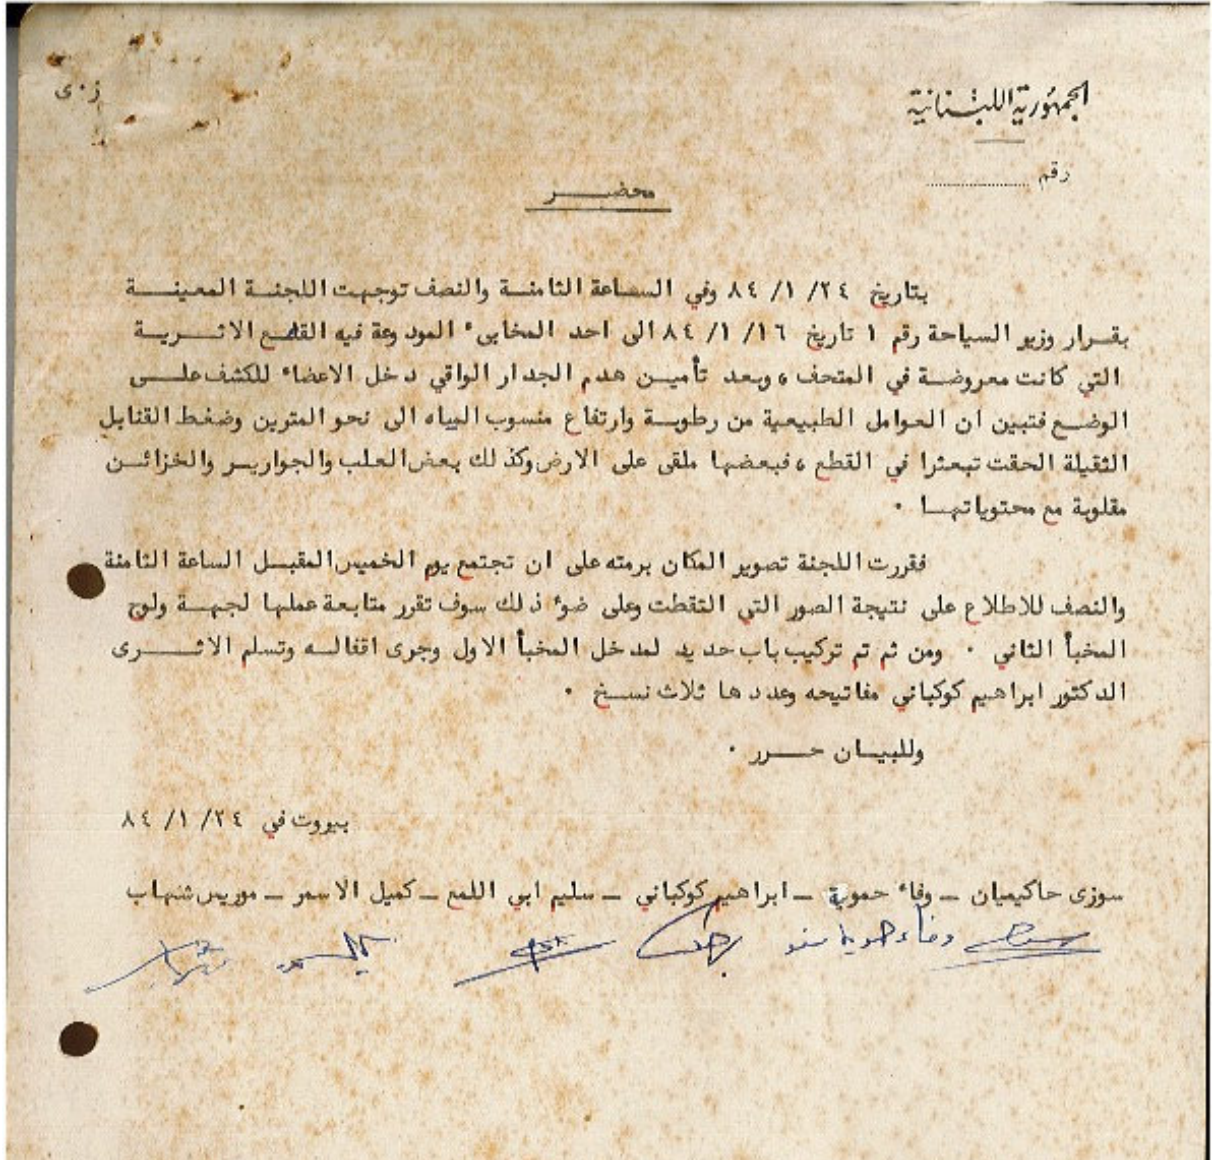 ز.ى
الجمهورية اللبنانية
رقم ..................
محضر
بتاريخ ٢٤ /١ /٨٤ وفي الساعة الثامنة والنصف توجهت اللجنة المعينة
بقرار وزير السياحة رقم ١ تاريخ ١٦ /١ /٨٤ الى احد المخابىء المودوعة فيه القطع الاثرية
التي كانت معروضة في المتحف ، وبعد تأمين هدم الجدار الواقي دخل الاعضاء للكشف على
الوضع فتبين ان العوامل الطبيعية من رطوبة وارتفاع منسوب المياه الى نحو المترين وضغط القنابل
الثقيلة الحقت تبعثرا في القطع ، فبعضها ملقى على الارض وكذلك بعض العلب والجوارير والخزائن
مقلوبة مع محتوياتها .
فقررت اللجنة تصوير المكان برمته على ان تجتمع يوم الخميس المقبل الساعة الثامنة
والنصف للاطلاع على نتيجة الصور التي التقطت وعلى ضوء ذلك سوف تقرر متابعة عملها لجهة ولوج
المخبأ الثاني . ومن ثم تم تركيب باب حديد لمدخل المخبأ الاول وجرى اقفاله وتسلم الاثرى
الدكتور ابراهيم كوكباني مفاتيحه وعددها ثلاث نسخ .
وللبيان حرر .
بيروت في ٢٤ /١ /٨٤
سوزى حاكيميان - وفاء حموية - ابراهيم كوكباني - سليم ابي اللمع - كميل الاسمر - موريس شهاب